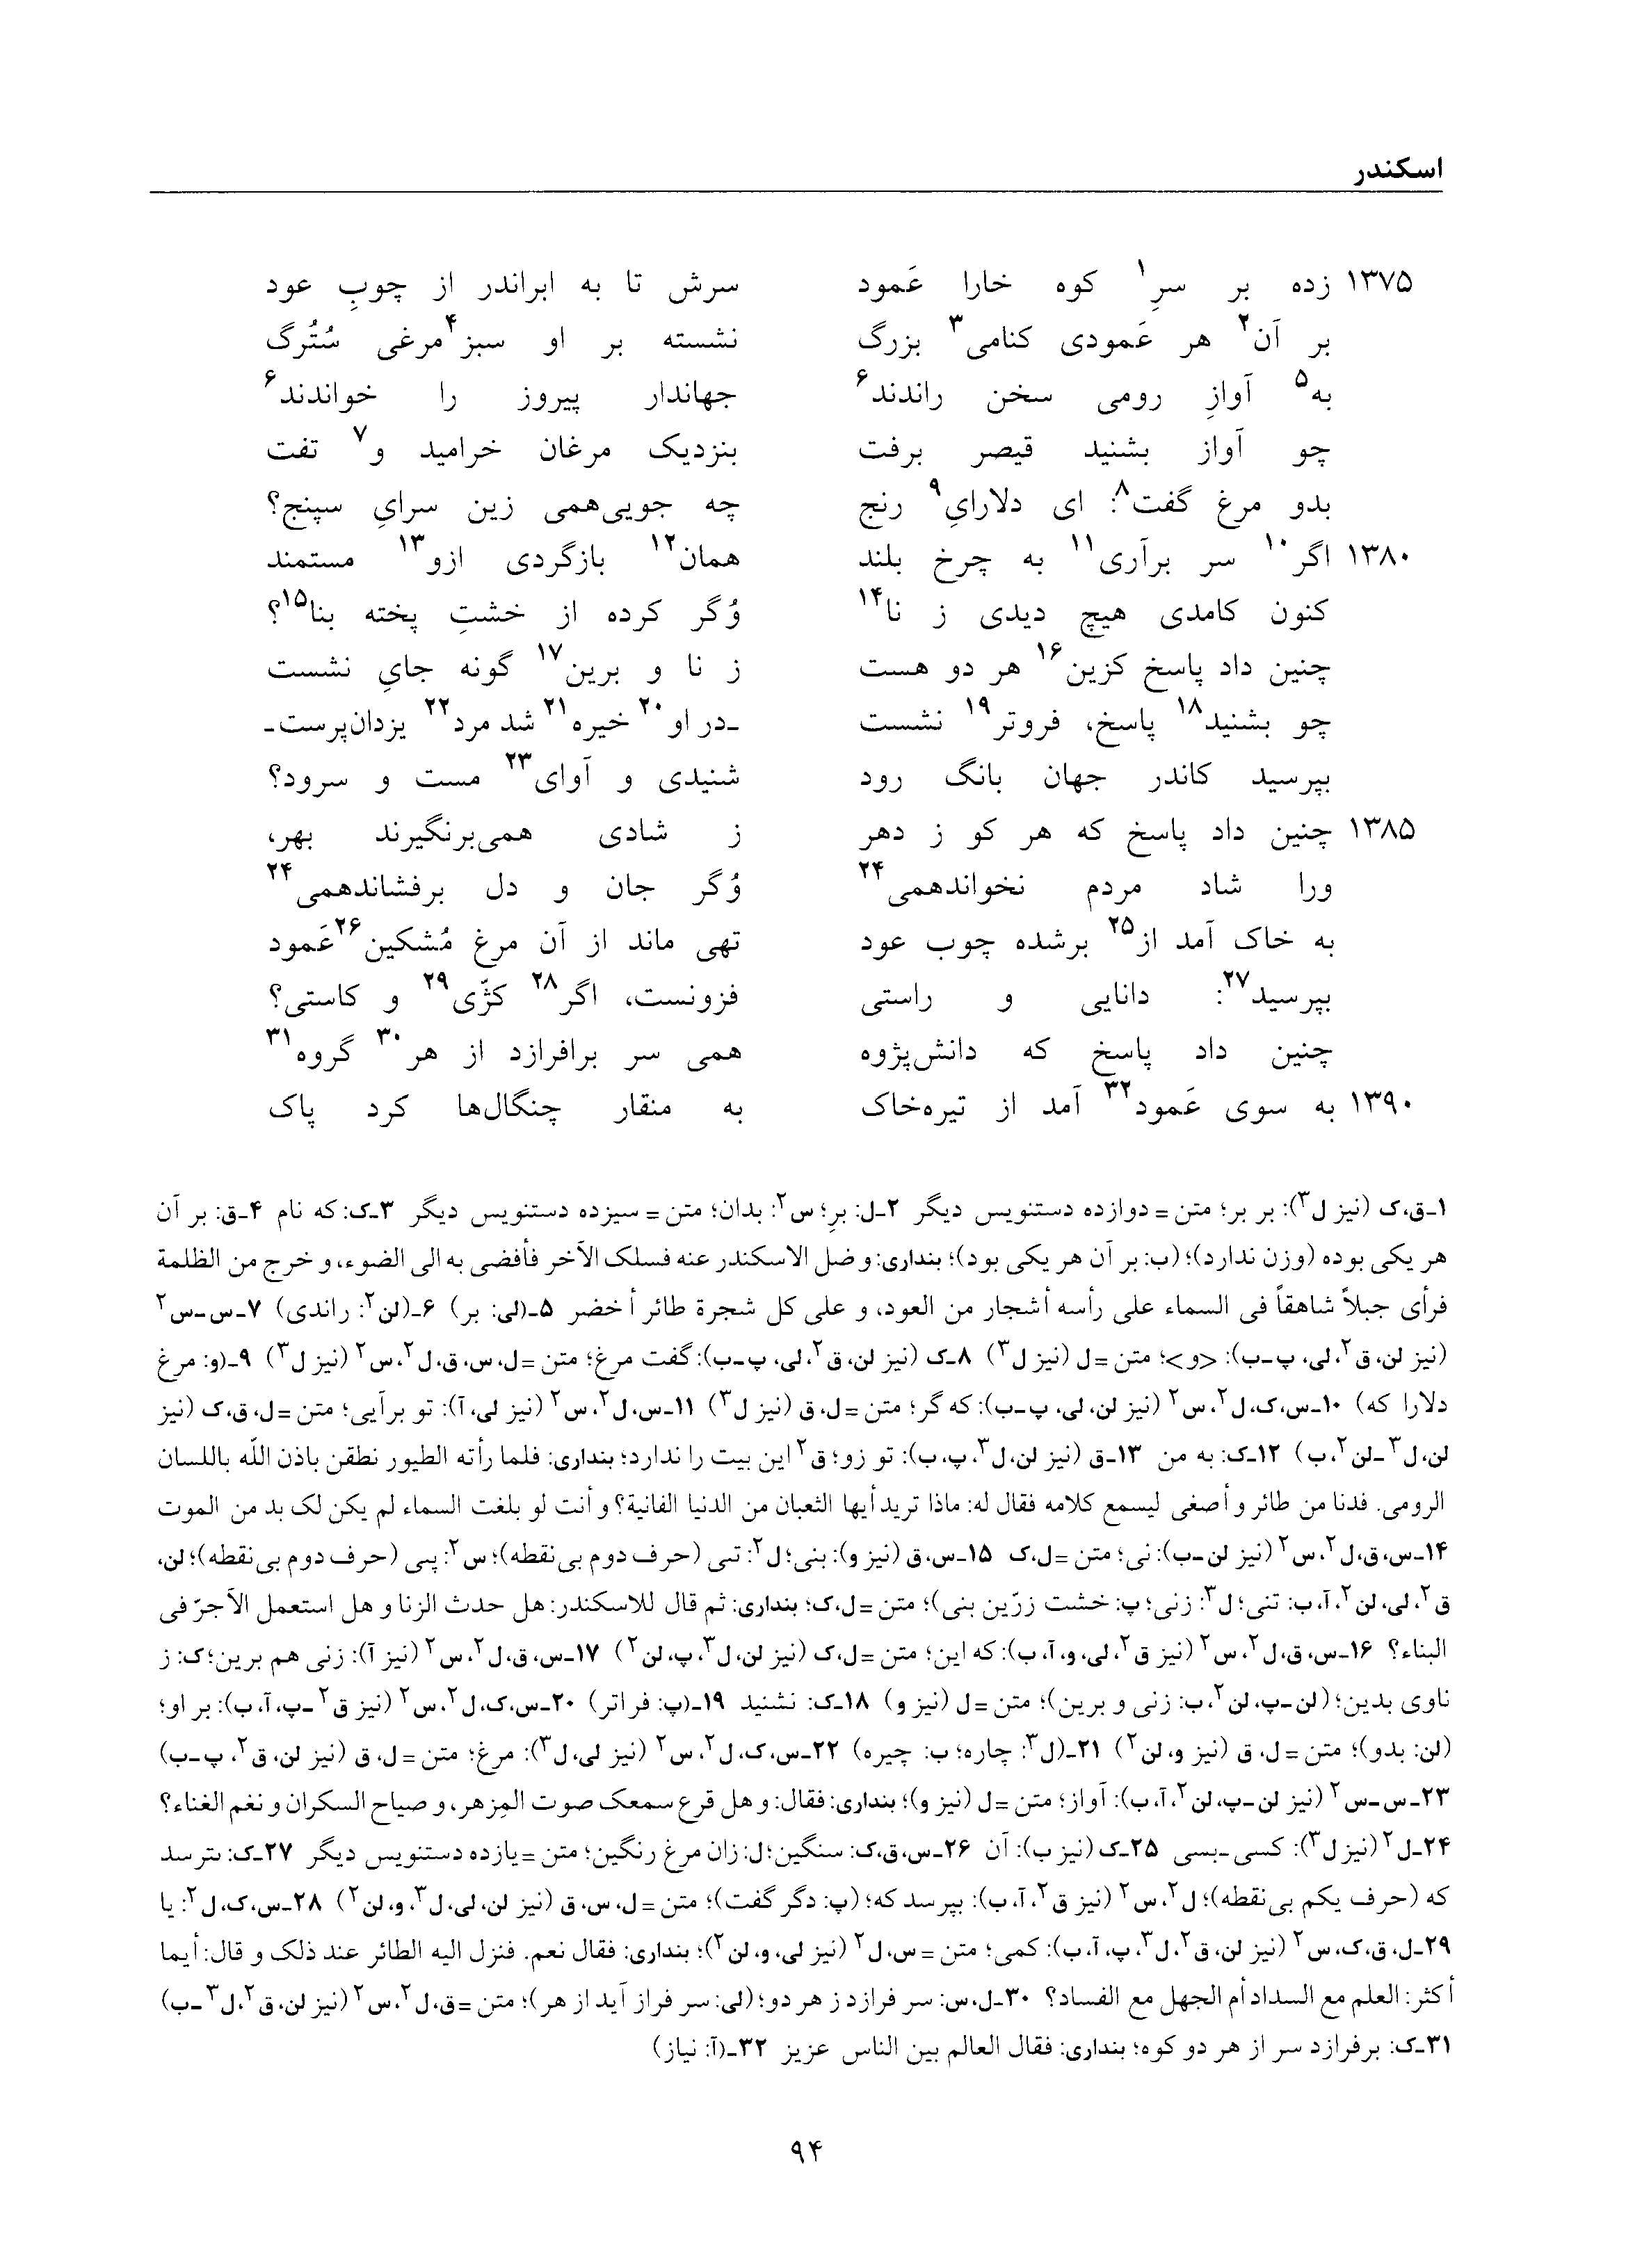 اسکندر
۱۳۷۵ زده بر سرِ۱ کوه خارا عَمود سرش تا به ابراندر از چوبِ عود
بر آن۲ هر عَمودی کنامی۳ بزرگ نشسته بر او سبز۴مرغی سُتُرگ
به۵ آوازِ رومی سخن راندند۶ جهاندار پیروز را خواندند۶
چو آواز بشنید قیصر برفت بنزدیک مرغان خرامید و۷ تفت
بدو مرغ گفت۸: ای دلارایِ۹ رنج چه جویی‌همی زین سرایِ سپنج؟
۱۳۸۰ اگر۱۰ سر برآری۱۱ به چرخ بلند همان۱۲ بازگردی ازو۱۳ مستمند
کنون کامدی هیچ دیدی ز نا۱۴ وُگر کرده از خشتِ پخته بنا۱۵؟
چنین داد پاسخ کزین۱۶ هر دو هست ز نا و برین۱۷ گونه جایِ نشست
چو بشنید۱۸ پاسخ، فروتر۱۹ نشست -در او۲۰ خیره۲۱ شد مرد۲۲ یزدان‌پرست-
بپرسید کاندر جهان بانگ رود شنیدی و آوای۲۳ مست و سرود؟
۱۳۸۵ چنین داد پاسخ که هر کو ز دهر ز شادی همی‌برنگیرند بهر،
ورا شاد مردم نخواندهمی۲۴ وُگر جان و دل برفشاندهمی۲۴
به خاک آمد از۲۵ برشده چوب عود تهی ماند از آن مرغ مُشکین۲۶عَمود
بپرسید۲۷: دانایی و راستی فزونست، اگر۲۸ کژّی۲۹ و کاستی؟
چنین داد پاسخ که دانش‌پژوه همی سر برافرازد از هر۳۰ گروه۳۱
۱۳۹۰ به سوی عَمود۳۲ آمد از تیره‌خاک به منقار چنگال‌ها کرد پاک
۱ـ‌ق،ک (نیز ل۳): بر بر؛ متن = دوازده دستنویس دیگر ۲ـ‌ل: برِ؛ س۲: بدان؛ متن = سیزده دستنویس دیگر ۳ـ‌ک: که نام ۴ـ‌ق: بر آن
هر یکی بوده (وزن ندارد)؛ (ب: بر آن هر یکی بود)؛ بنداری: و ضل الاسکندر عنه فسلک الآخر فأفضی به الی الضوء، و خرج من الظلمة
فرأی جبلاً شاهقاً فی السماء علی رأسه أشجار من العود، و علی کل شجرة طائر أخضر ۵ـ(لی: بر) ۶ـ(لن۲: راندی) ۷ـ‌س-س۲
(نیز لن، ق۲، لی، پ-ب): <و>؛ متن = ل (نیز ل۳) ۸ـ‌ک (نیز لن، ق۲، لی، پ-ب): گفت مرغ؛ متن = ل، س، ق، ل۲، س۲ (نیز ل۳) ۹ـ(و: مرغ
دلارا که) ۱۰ـ‌س، ک، ل۲، س۲ (نیز لن، لی، پ-ب): که گر؛ متن = ل، ق (نیز ل۳) ۱۱ـ‌س، ل۲، س۲ (نیز لی، آ): تو برآیی؛ متن = ل، ق، ک (نیز
لن، ل۳-لن۲، ب) ۱۲ـ‌ک: به من ۱۳ـ‌ق (نیز لن، ل۳، پ، ب): تو زو؛ ق۲ این بیت را ندارد؛ بنداری: فلما رأته الطیور نطقن باذن اللّه باللسان
الرومی. فدنا من طائر و أصغی لیسمع کلامه فقال له: ماذا ترید أیها الثعبان من الدنیا الفانیة؟ و أنت لو بلغت السماء لم یکن لک بد من الموت
۱۴ـ‌س، ق، ل۲، س۲ (نیز لن-ب): نی؛ متن = ل، ک ۱۵ـ‌س، ق (نیز و): بنی؛ ل۲: تبی (حرف دوم بی‌نقطه)؛ س۲: پبی (حرف دوم بی‌نقطه)؛ لن،
ق۲، لی، لن۲، آ، ب: تنی؛ ل۳: زنی؛ پ: خشت زرّین بنی)؛ متن = ل، ک؛ بنداری: ثم قال للاسکندر: هل حدث الزنا و هل استعمل الآجرّ فی
البناء؟ ۱۶ـ‌س، ق، ل۲، س۲ (نیز ق۲، لی، و، آ، ب): که این؛ متن = ل، ک (نیز لن، ل۳، پ، لن۲) ۱۷ـ‌س، ق، ل۲، س۲ (نیز آ): زنی هم برین؛ ک: ز
ناوی بدین؛ (لن-پ، لن۲، ب: زنی و برین)؛ متن = ل (نیز و) ۱۸ـ‌ک: نشنید ۱۹ـ(پ: فراتر) ۲۰ـ‌س، ک، ل۲، س۲ (نیز ق۲-پ، آ، ب): بر او؛
(لن: بدو)؛ متن = ل، ق (نیز و، لن۲) ۲۱ـ(ل۳: چاره؛ ب: چیره) ۲۲ـ‌س، ک، ل۲، س۲ (نیز لی، ل۳): مرغ؛ متن = ل، ق (نیز لن، ق۲، پ-ب)
۲۳ـ‌س-س۲ (نیز لن-پ، لن۲، آ، ب): آواز؛ متن = ل (نیز و)؛ بنداری: فقال: و هل قرع سمعک صوت المِزهر، و صیاح السکران و نغم الغناء؟
۲۴ـ‌ل۲ (نیز ل۳): کسی-بسی ۲۵ـ‌ک (نیز ب): آن ۲۶ـ‌س، ق، ک: سنگین؛ ل: زان مرغ رنگین؛ متن = یازده دستنویس دیگر ۲۷ـ‌ک: ٮترسد
که (حرف یکم بی‌نقطه)؛ ل۲، س۲ (نیز ق۲، آ، ب): بپرسد که؛ (پ: دگر گفت)؛ متن = ل، س، ق (نیز لن، لی، ل۳، و، لن۲) ۲۸ـ‌س، ک، ل۲: یا
۲۹ـ‌ل، ق، ک، س۲ (نیز لن، ق۲، ل۳، پ، آ، ب): کمی؛ متن = س، ل۲ (نیز لی، و، لن۲)؛ بنداری: فقال نعم. فنزل الیه الطائر عند ذلک و قال: أیما
أکثر: العلم مع السداد أم الجهل مع الفساد؟ ۳۰ـ‌ل، س: سر فرازد ز هر دو؛ (لی: سر فراز آید از هر)؛ متن = ق، ل۲، س۲ (نیز لن، ق۲، ل۳-ب)
۳۱ـ‌ک: برفرازد سر از هر دو کوه؛ بنداری: فقال العالم بین الناس عزیز ۳۲ـ(آ: نیاز)
۹۴